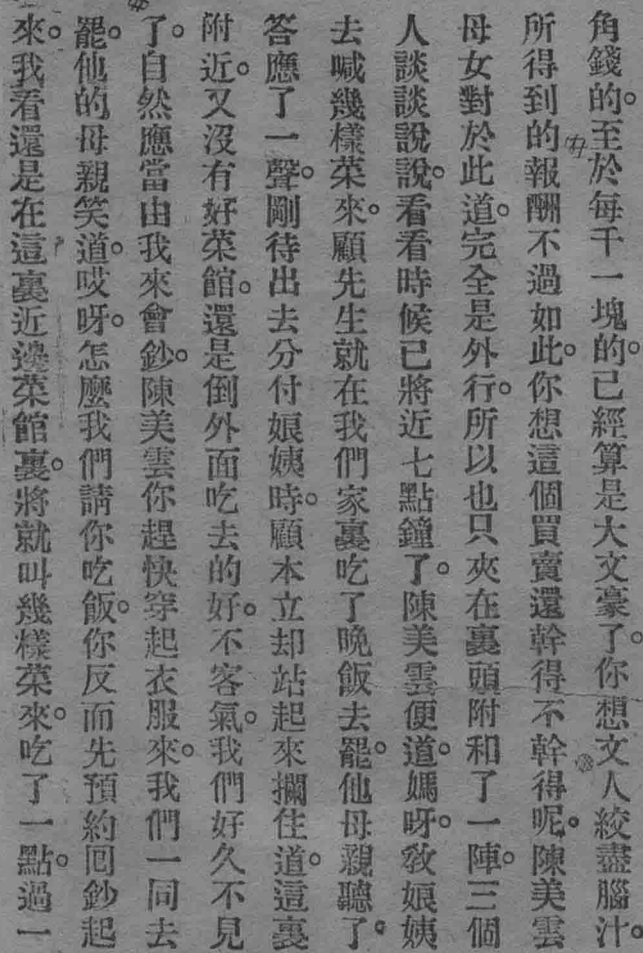 角錢的。至於每千一塊的。已經算是大文豪了。你想文人絞盡腦汁。
所得到的報酬不過如此。你想這個買賣還幹得不幹得呢。陳美雲
母女對於此道。完全是外行。所以也只夾在裏頭附和了一陣。三個
人談談說說。看看時候已將近七點鐘了。陳美雲便道。媽呀。敎娘姨
去喊幾樣菜來。顧先生就在我們家裏吃了晚飯去罷。他母親聽了。
答應了一聲。剛待出去分付娘姨時。顧本立却站起來攔住道。這裏
附近。又沒有好菜館。還是倒外面吃去的好。不客氣。我們好久不見
了。自然應當由我來會鈔。陳美雲你趕快穿起衣服來。我們一同去
罷。他的母親笑道。哎呀。怎麼我們請你吃飯。你反而先預約囘鈔起
來。我看還是在這裏近邊菜館裏。將就叫幾樣菜來。吃了一點。過一